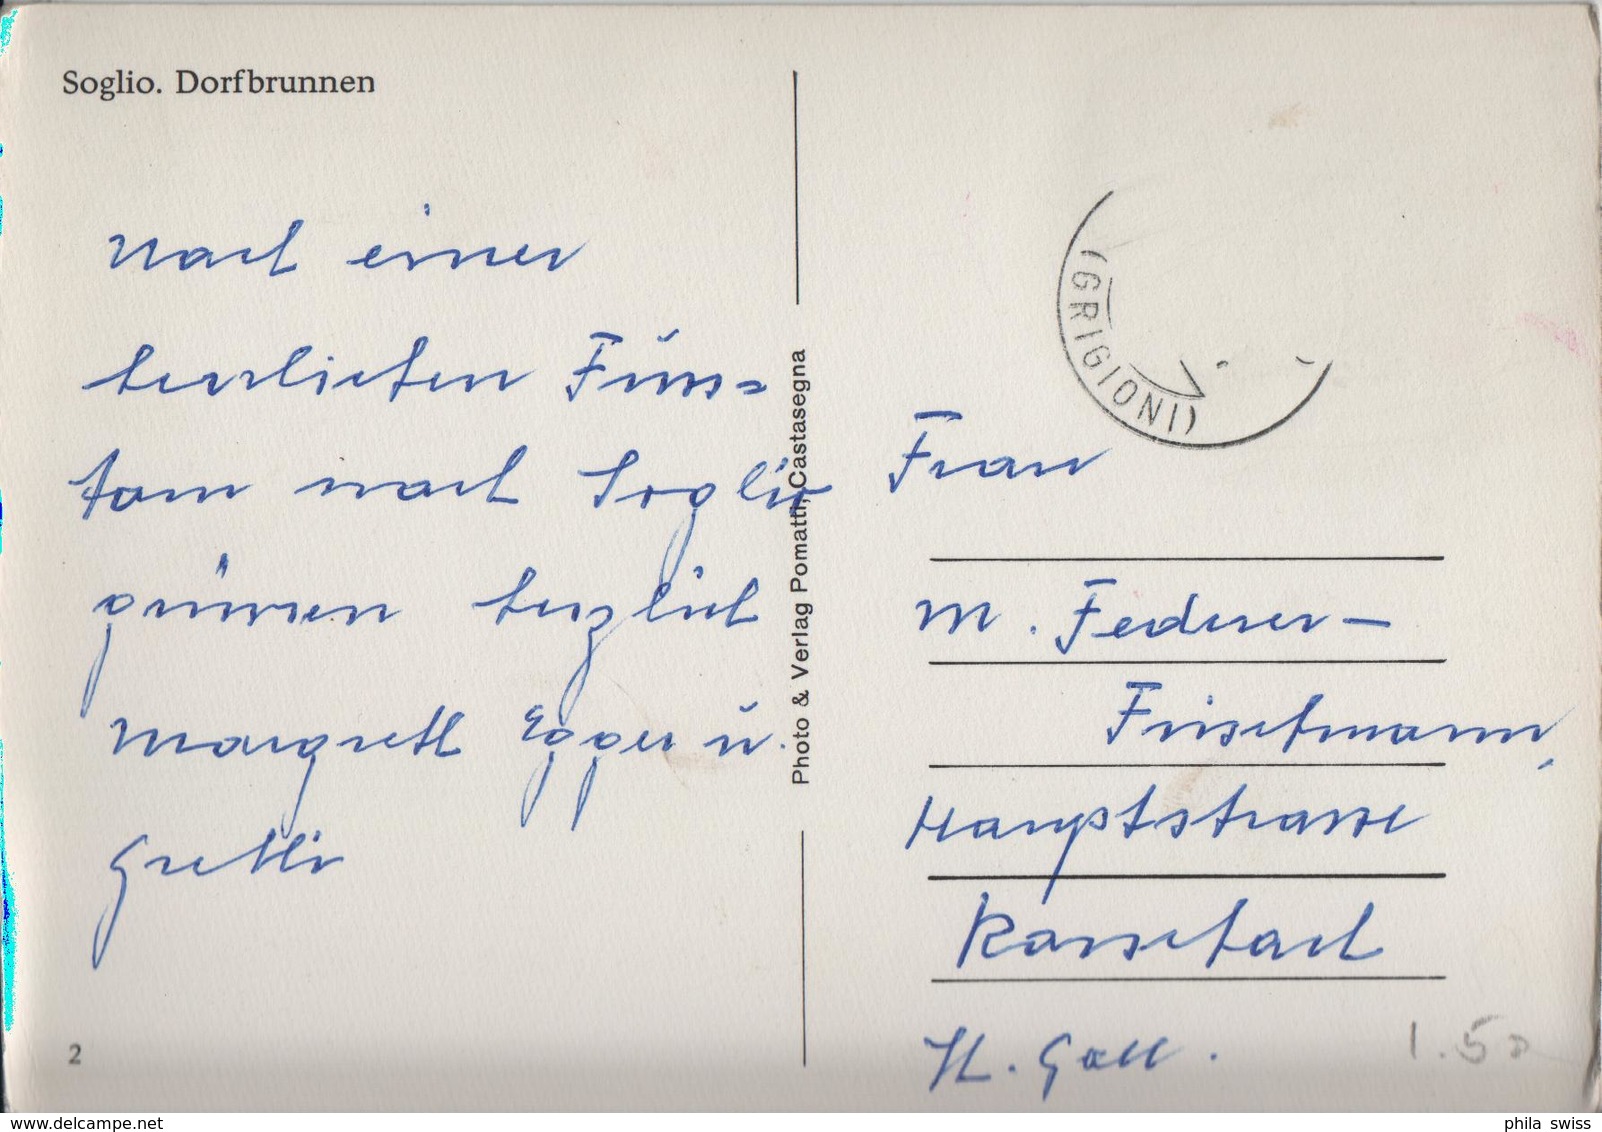 Soglio. Dorfbrunnen
Nach einer
herrlichen Fuss=
tour nach Soglio
grüssen herzlich
Margreth Egger u.
Gretli
2
Photo & Verlag Pomatti, Castasegna
(GRIGIONI)
Frau
M. Federer-
Frischmann,
Hauptstrasse
Rorschach
St. Gall.
1.50
www.delcampe.net
phila swiss